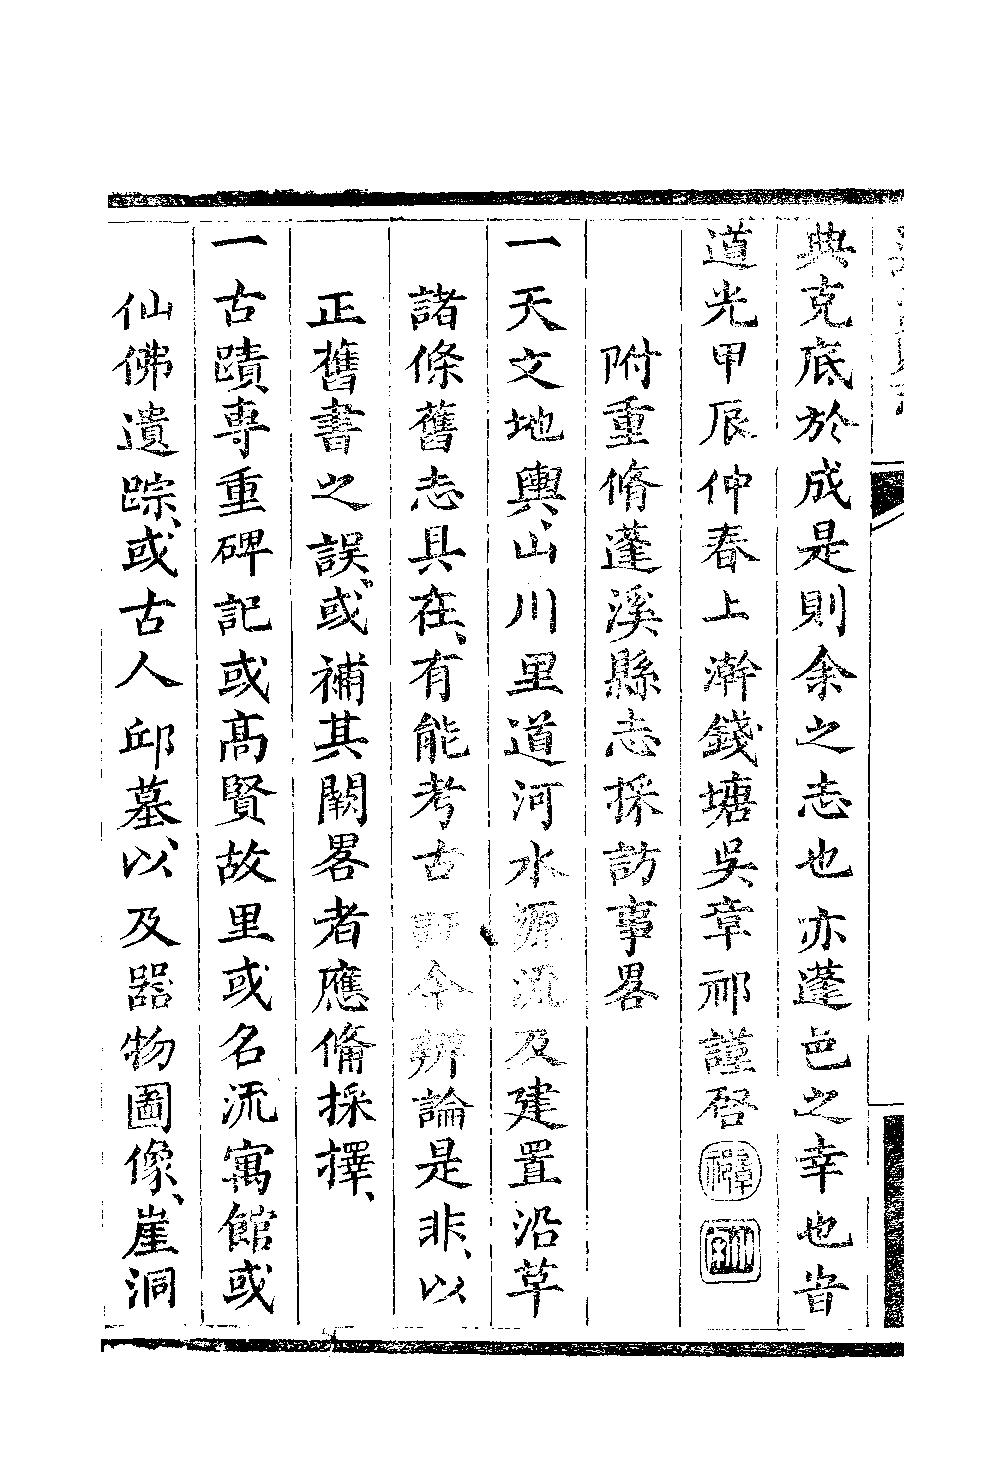 典克底於成是則余之志也亦蓬邑之幸也旹
道光甲辰仲春上澣錢塘吳章祁謹啓
附重脩蓬溪縣志採訪事畧
一天文地輿、山川里道河水源流及建置沿革
諸條舊志具在、有能考古証今辨論是非、以
正舊書之誤、或補其闕畧者應備採擇、
一古蹟專重碑記或高賢故里或名流寓館或
仙佛遺踪、或古人邱墓、以及器物圖像、崖洞